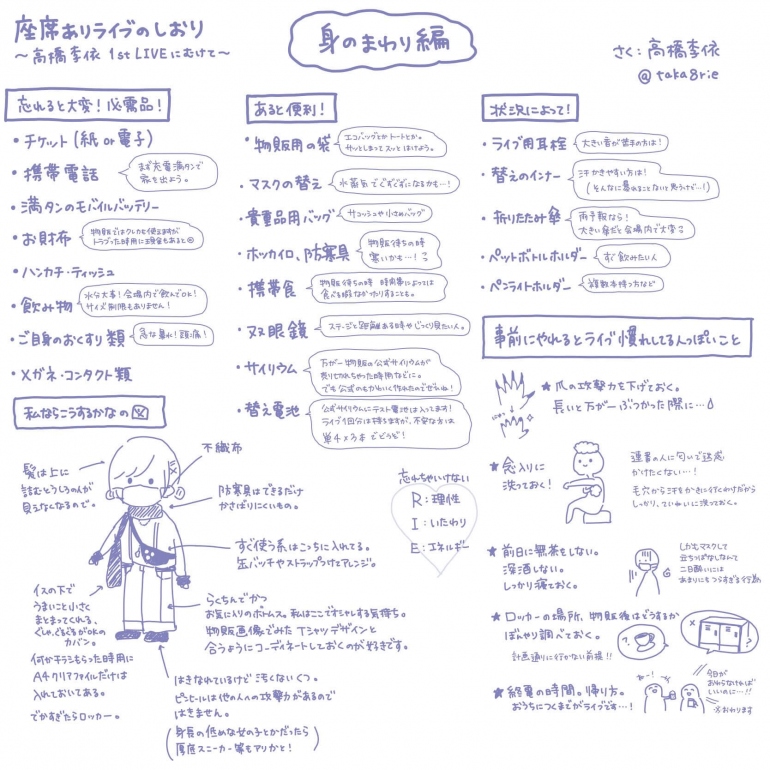 座席ありライブのしおり
〜高橋李依 1st LIVEにむけて〜
身のまわり編
さく：高橋李依
@taka8rie
忘れると大変！必需品！
・チケット（紙or電子）
・携帯電話
まず充電満タンで
家を出よう。
・満タンのモバイルバッテリー
・お財布
物販ではクレカも使えますが
トラブった時用に現金もあると◎
・ハンカチ・ティッシュ
・飲み物
水分大事！会場内で飲んでOK！
サイズ制限もありません！
・ご自身のおくすり類
急な暴れ！頭痛！
・メガネ・コンタクト類
あると便利！
・物販用の袋
エコバッグとかトートとか。
サッとしまってスッとはけよう。
・マスクの替え
水蒸気でぐずぐずになるかも…！
・貴重品用バッグ
サコッシュや小さめバッグ
・ホッカイロ、防寒具
物販待ちの時
寒いかも…！
・携帯食
物販待ちの時 時間帯によっては
食べる暇なかったりすることも。
・双眼鏡
ステージと距離ある時やじっくり見たい人。
・サイリウム
万が一物販の公式サイリウムが
売り切れちゃった時用などに。
でも公式のもかわいく作れたのでぜひね！
・替え電池
公式サイリウムにテスト電池は入ってます！
ライブ1回分は持ちますが、不安な方は
単4×3本でどうぞ！
状況によって！
・ライブ用耳栓
大きい音が苦手の方は！
・替えのインナー
汗かきやすい方は！
（そんなに暴れることないと思うけど…！）
・折りたたみ傘
雨予報なら！
大きい傘だと会場内で大変
・ペットボトルホルダー
すぐ飲みたい人
・ペンライトホルダー
複数本持つ方など
事前にやれるとライブ慣れしてる人っぽいこと
★爪の攻撃力を下げておく。
長いと万が一ぶつかった際に…
★念入りに
洗っておく！
連番の人に匂いで迷惑
かけたくない…！
毛穴から汗をかきに行くわけだから
しっかり、ていねいに洗っておく。
★前日に無茶をしない。
深酒しない。
しっかり寝ておく。
しかもマスクして
立ちっぱなしなんて
二日酔いには
あまりにもつらすぎる行為
★ロッカーの場所、物販後はどうするか
ぼんやり調べておく。
計画通りに行かない前提！！
★終演の時間。帰り方。
おうちにつくまでがライブです…！
ねー！
今日が
おわらなければ
いいのに…!!
※おわります
私ならこうするかなの図
髪は上に
詰むとうしろの人が
見えなくなるので。
不織布
防寒具はできるだけ
かさばりにくいもの。
すぐ使う系はこっちに入れてる。
缶バッチやストラップつけてアレンジ。
イスの下で
うまいこと小さく
まとまってくれる、
ぐしゃぐるぐるがOKの
カバン。
何かチラシもらった時用に
A4クリアファイルだけは
入れておいてある。
でかすぎたらロッカー。
らくちんでかつ
お気に入りのボトムス。私はここでオシャレする気持ち。
物販画像でみたTシャツデザインと
合うようにコーディネートしておくのが好きです。
はきなれているけど汚くないくつ。
ピンヒールは他の人への攻撃力があるので
はきません。
（身長の低めな女の子とかだったら
厚底スニーカー等もアリかと！）
忘れちゃいけない
R：理性
I：いたわり
E：エネルギー